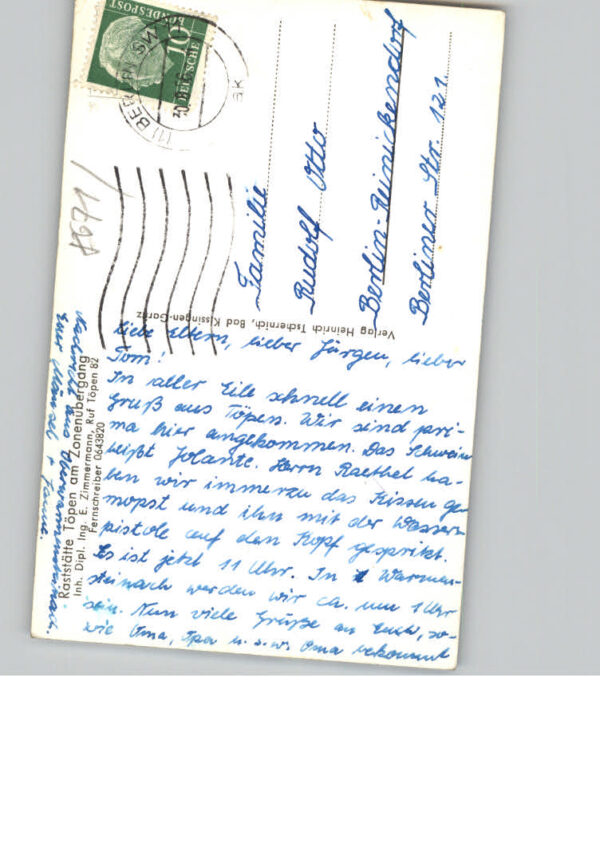 DEUTSCHE
BUNDESPOST
10
(1) BERLIN SW
ak
Familie
Rudolf Otto
Berlin-Reinickendorf
Berliner Str. 121
Verlag Heinrich Tschernich, Bad Kissingen-Garitz
Liebe Eltern, lieber Jürgen, lieber
Tom!
In aller Eile schnell einen
Gruß aus Töpen. Wir sind pri-
ma hier angekommen. Das Schwein
heißt Jolante. Herrn Raethel ha-
ben wir immerzu das Kissen ge-
mopst und ihn mit der Wasser-
pistole auf den Kopf gespritzt.
Es ist jetzt 11 Uhr. In Warmen-
steinach werden wir ca. um 1 Uhr
sein. Nun viele Grüße an Euch, so-
wie Oma, Opa u.s.w. Oma bekommt
Nachricht aus Oberwarmensteinach.
Eure
Raststätte Töpen am Zonenübergang
Inh. Dipl. Ing. E. Zimmermann, Ruf Töpen 82
Fernschreiber 0643820